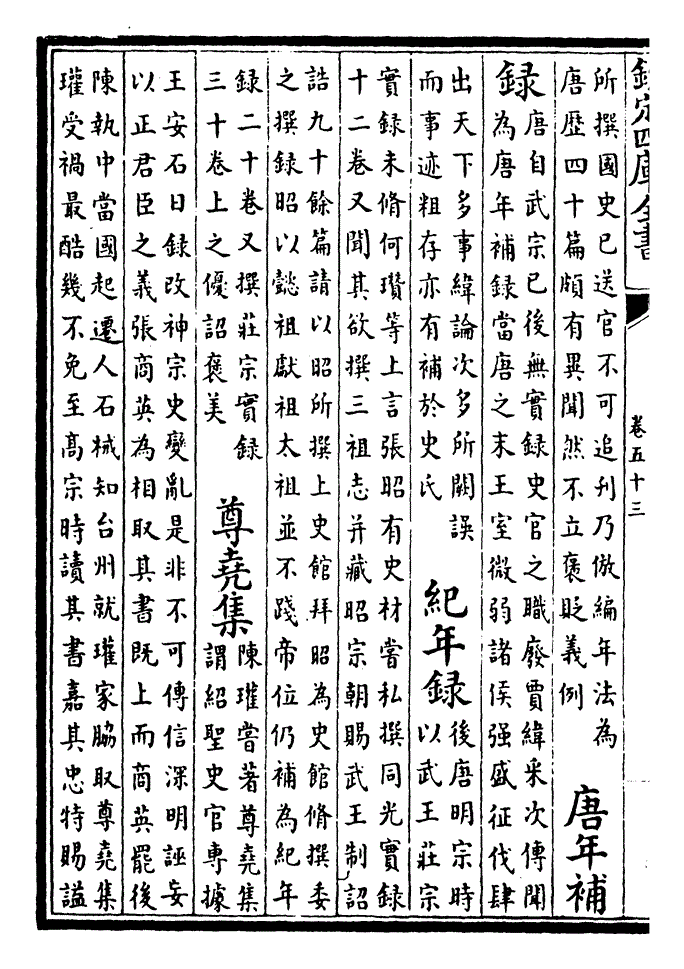 欽定四庫全書
卷五十三
所撰國史已送官不可追刋乃倣編年法為
唐歴四十篇頗有異聞然不立褒貶義例
唐年補
録
唐自武宗已後無實録史官之職廢賈緯采次傳聞
為唐年補録當唐之末王室微弱諸侯强盛征伐肆
出天下多事緯論次多所闕誤
而事迹粗存亦有補於史氏
紀年録
後唐明宗時
以武王莊宗
實録未脩何瓚等上言張昭有史材嘗私撰同光實録
十二卷又聞其欲撰三祖志并藏昭宗朝賜武王制詔
誥九十餘篇請以昭所撰上史館拜昭為史館脩撰委
之撰録昭以懿祖獻祖太祖並不踐帝位仍補為紀年
録二十卷又撰莊宗實録
三十卷上之優詔褒美
尊堯集
陳瓘嘗著尊堯集
謂紹聖史官專據
王安石日録改神宗史變亂是非不可傳信深明誣妄
以正君臣之義張商英為相取其書既上而商英罷後
陳執中當國起遷人石械知台州就瓘家脇取尊堯集
瓘受禍最酷幾不免至髙宗時讀其書嘉其忠特賜諡